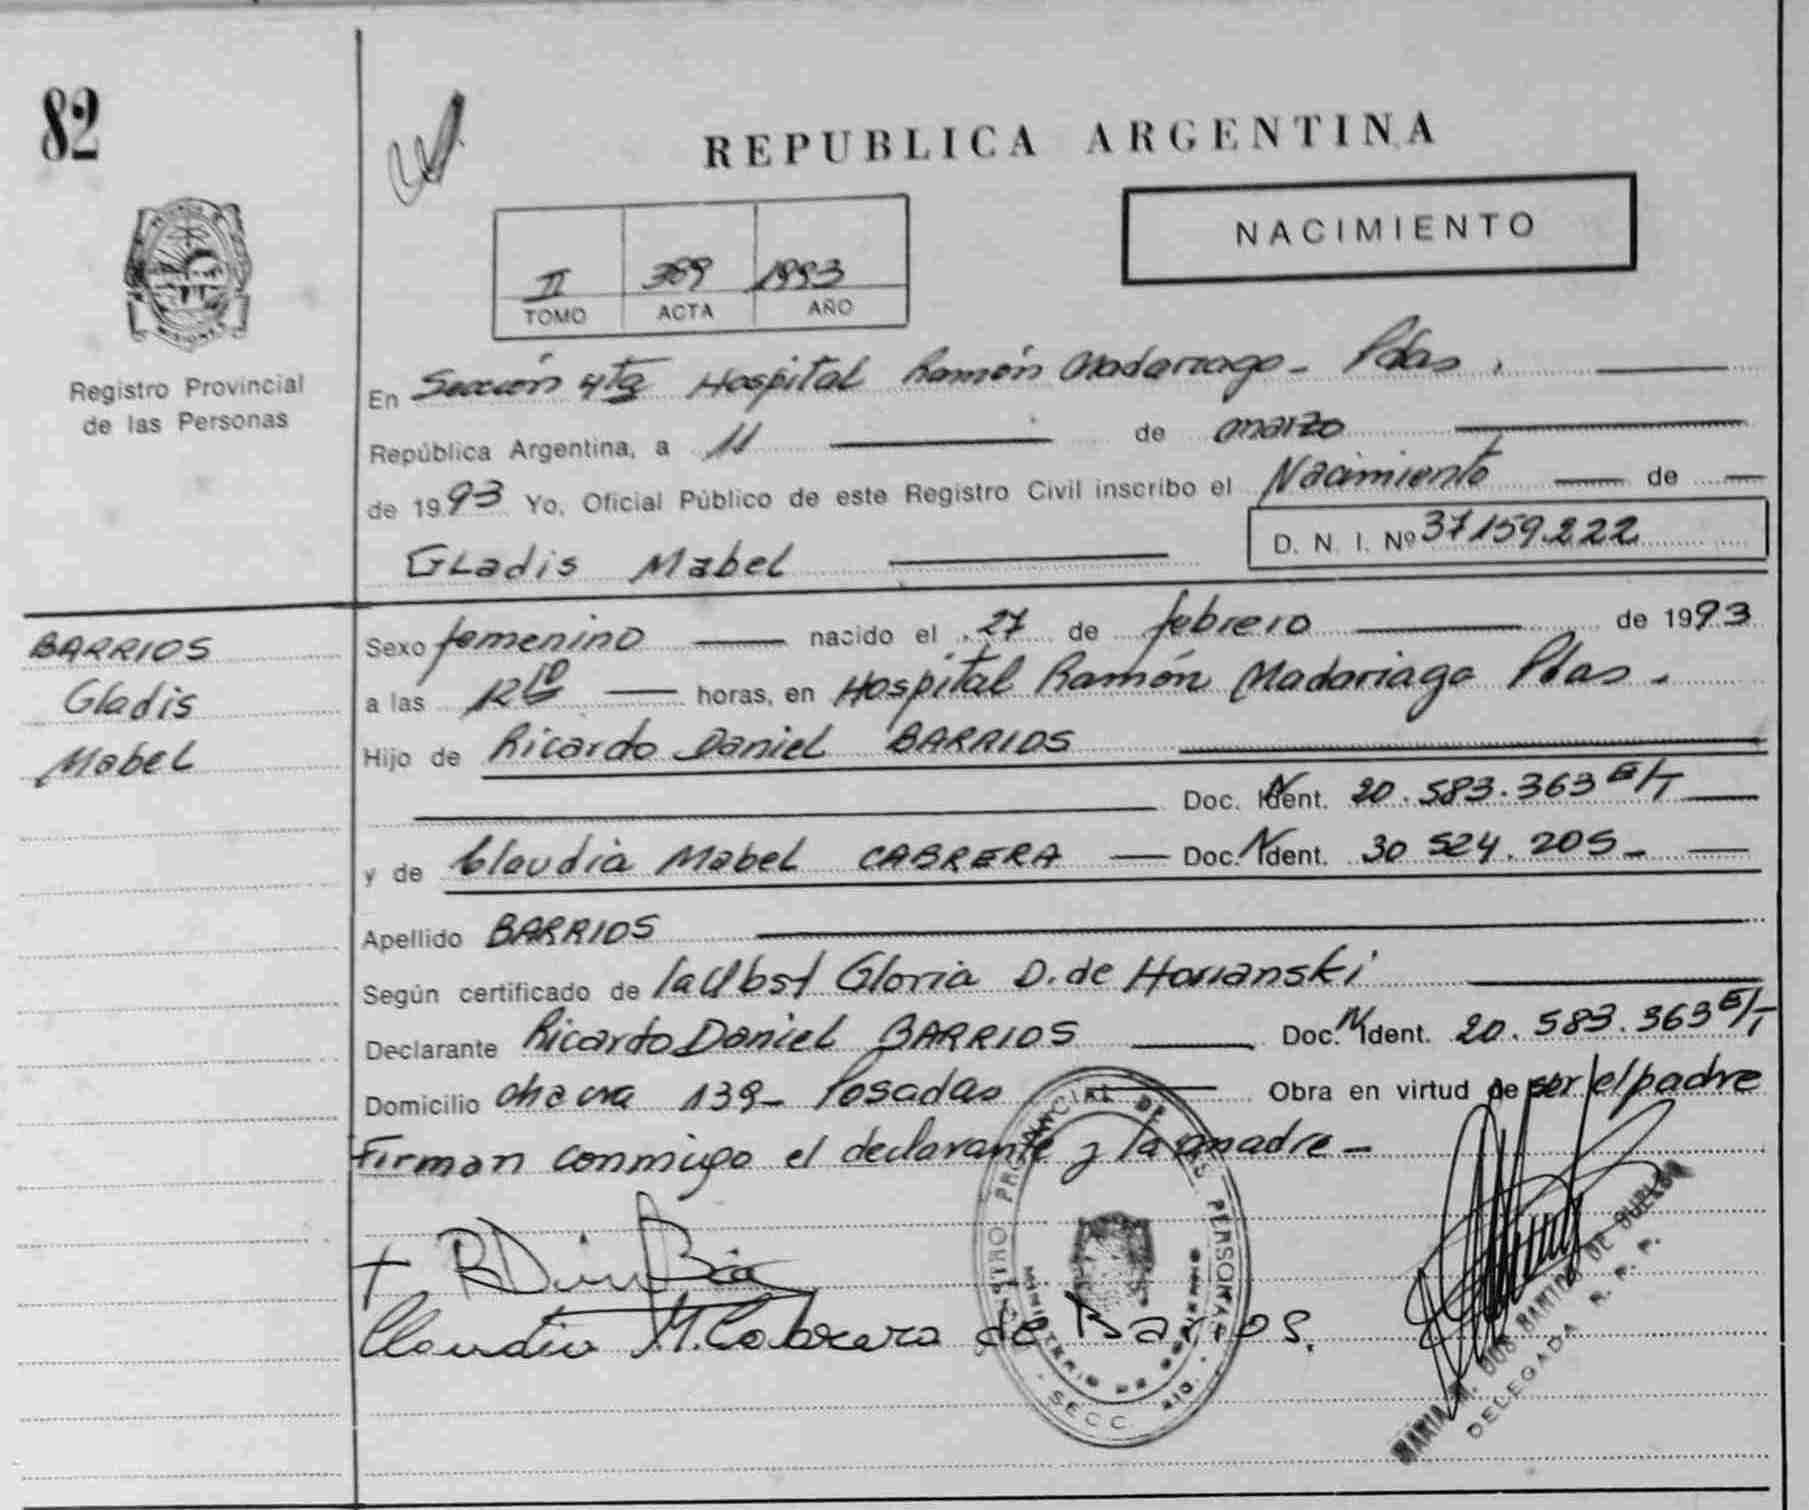 82
REPUBLICA ARGENTINA
NACIMIENTO
II 389 1993
TOMO ACTA AÑO
Registro Provincial
de las Personas
En Sección 4ta Hospital Ramón Madariaga - Pdas.
República Argentina, a 11 de marzo
de 1993 Yo, Oficial Público de este Registro Civil inscribo el Nacimiento de
D. N. I. Nº 37159.222
Gladis Mabel
BARRIOS
Gladis
Mabel
Sexo femenino nacido el 27 de febrero de 1993
a las 12 10 horas, en Hospital Ramón Madariaga Pdas.
Hijo de Ricardo Daniel BARRIOS
Doc. Ident. 20.583.363 E/T
y de Claudia Mabel CABRERA Doc. Ident. 30 524.205-
Apellido BARRIOS
Según certificado de la Obst Gloria D. de
Declarante Ricardo Daniel BARRIOS Doc. Ident. 20.583.363 E/T
Domicilio 139- Posadas Obra en virtud de ser el padre
Firman conmigo el declarante y la madre-
Claudia M. Cabrera de Barrios.
REGISTRO PROVINCIAL DE LAS PERSONAS
MINISTERIO DE GOBIERNO
SECC.
DELEGADA R. P. P.